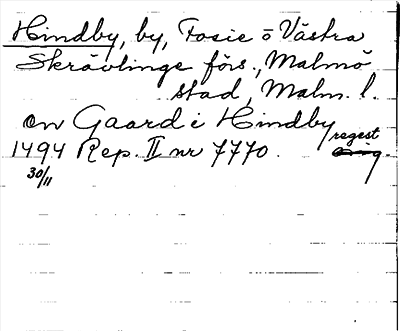 Hindby, by, Fosie o Västra
Skrävlinge förs., Malmö
stad, Malm. l.
en Gaard i Hindby
1494 Rep. II nr 7770. regest
30/11